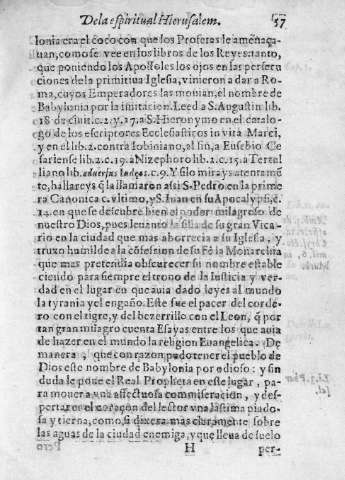 De la espiritual Hierusalem. 57
lonia era el coco con que los Profetas le amenaça-
uan, como se vee en los libros de los Reyes: tanto,
que poniendo los Apostoles los ojos en las persecu
ciones de la primitiua Iglesia, vinieron a dar a Ro-
ma, cuyos Emperadores las mouian, el nombre de
Babylonia por la imitacion. Leed a S. Augustin lib.
18 de ciuit. c. 2. y. 27. a S. Hieronymo en el catalo-
go de los escriptores Ecclesiasticos in vita Marci,
y en el lib. 2. contra Iobiniano, al fin, a Eusebio Ce
sariense lib. 2. c. 19. a Nizephoro lib. 2. c. 15. a Tertul
liano lib. aduersus Iudæos. c. 9. Y si lo mirays atentamẽ
te, hallareys q̃ la llamaron assi S. Pedro en la prime
ra Canonica c. vltimo, y S. Iuan en su Apocalypsi, c.
14. en que se descubre bien el poder milagroso de
nuestro Dios, pues leuanto la silla de su gran Vica-
rio en la ciudad que mas aborrecia a su Iglesia, y
truxo humilde a la cõfesion de su Fè la Monarchia
que mas pretendia obscurecer su nombre estable
ciendo para siempre el trono de la Iusticia y ver-
dad en el lugar en que auia dado leyes al mundo
la tyrania y el engaño. Este fue el pacer del corde-
ro con el tigre, y del bezerrillo con el Leon, q̃ por
tan gran milagro cuenta Esayas entre los que auia
de hazer en el mundo la religion Euangelica. De
manera, que con razon pudo tener el pueblo de
Dios este nombre de Babylonia por odioso: y sin
duda le pone el Real Propheta en este lugar, pa-
ra mouer a vna affectuosa commiseracion, y des-
pertar en el coraçon del lector vna lastima piado-
sa y tierna, como si dixera mas claramente sobre
las aguas de la ciudad enemiga, y que lleua de suelo
H per-